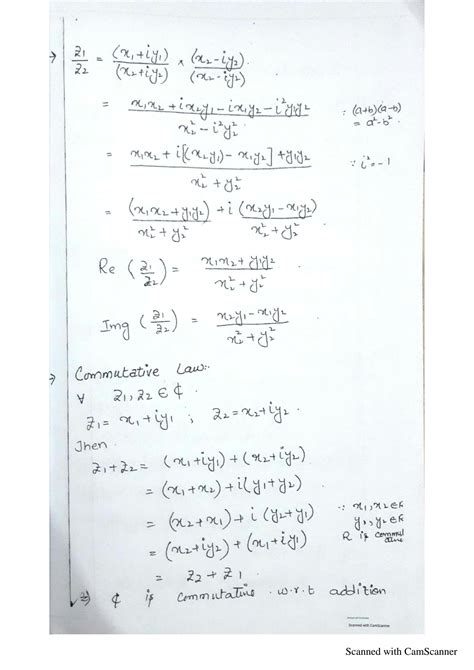 → z₁/z₂ = (x₁+iy₁)/(x₂+iy₂) × (x₂-iy₂)/(x₂-iy₂)
= (x₁x₂ + ix₂y₁ - ix₁y₂ - i²y₁y₂)/(x₂² - i²y₂²) ∵ (a+b)(a-b) = a²-b²
= (x₁x₂ + i[(x₂y₁) - x₁y₂] + y₁y₂)/(x₂² + y₂²) ∵ i² = -1
= (x₁x₂ + y₁y₂)/(x₂² + y₂²) + i (x₂y₁ - x₁y₂)/(x₂² + y₂²)
Re (z₁/z₂) = (x₁x₂ + y₁y₂)/(x₂² + y₂²)
Img (z₁/z₂) = (x₂y₁ - x₁y₂)/(x₂² + y₂²)
→ Commutative Law:-
∀ z₁, z₂ ∈ ₵
z₁ = x₁ + iy₁ ; z₂ = x₂ + iy₂
Then
z₁+z₂ = (x₁+iy₁) + (x₂+iy₂)
= (x₁+x₂) + i(y₁+y₂)
= (x₂+x₁) + i (y₂+y₁) ∵ x₁, x₂ ∈ R
y₁, y₂ ∈ R
= (x₂+iy₂) + (x₁+iy₁) R is commutative
= z₂ + z₁
⇒ ₵ is commutative w.r.t addition
Scanned with CamScanner
Scanned with CamScanner